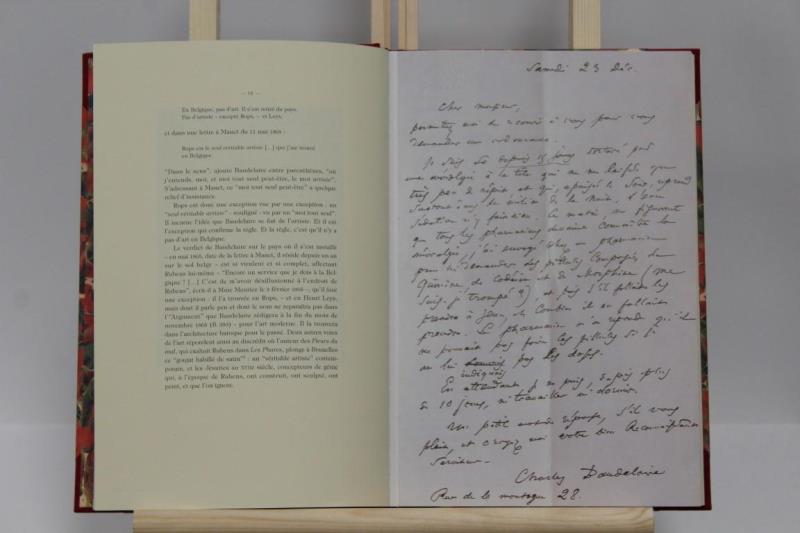 — 18 —
En Belgique, pas d'art. Il s'est retiré du pays.
Pas d'artiste – excepté Rops, – et Leys,
et dans une lettre à Manet du 11 mai 1865 :
Rops est le seul véritable artiste [...] que j'aie trouvé
en Belgique
"Dans le sens", ajoute Baudelaire entre parenthèses, "où
j'entends, moi, et moi tout seul peut-être, le mot artiste".
S'adressant à Manet, ce "moi tout seul peut-être" a quelque
relief d'insistance.
Rops est donc une exception vue par une exception : un
"seul véritable artiste" – souligné – vu par un "moi tout seul".
Il incarne l'idée que Baudelaire se fait de l'artiste. Et il est
l'exception qui confirme la règle. Et la règle, c'est qu'il n'y a
pas d'art en Belgique.
Le verdict de Baudelaire sur le pays où il s'est installé
– en mai 1865, date de la lettre à Manet, il réside depuis un an
sur le sol belge – est si virulent et si complet, affectant
Rubens lui-même – "Encore un service que je dois à la Belgique
! [...] C'est de m'avoir désillusionné à l'endroit de
Rubens", écrit-il à Mme Meurice le 3 février 1865 –, qu'il fait
une exception : il l'a trouvée en Rops, – et en Henri Leys,
mais dont il parle peu et dont le nom ne reparaîtra pas dans
l'"Argument" que Baudelaire rédigera à la fin du mois de
novembre 1865 – pour l'art moderne. Il la trouvera
dans l'architecture baroque pour le passé. Deux autres voies
de l'art répondent ainsi au discrédit où l'auteur des Fleurs du
mal, qui exaltait Rubens dans Les Phares, plonge à Bruxelles
ce "goujat habillé de satin" : un "véritable artiste" contemporain,
et les Jésuites au XVIIe siècle, concepteurs de génie
qui, à l'époque de Rubens, ont construit, ont sculpté, ont
peint, et que l'on ignorait.
Samedi 23 Déc.
Cher monsieur,
permettez moi de recourir à vous pour vous
demander une ordonnance.
Je suis depuis 15 jours torturé par
une névralgie à la tête qui ne me laisse que
très peu de répit et qui, apaisée le soir, reprend
au milieu de la nuit.
Ce matin, me figurant
que tous les pharmaciens devaient connaître la
névralgie, j'ai envoyé chez un pharmacien
pour lui demander des pilules composées de
Quinine, de codéine et de Morphine (me
suis-je trompé ?) et puis s'il fallait les
prendre à jeun, et combien il en fallait
prendre. Le pharmacien m'a répondu qu'il
ne pouvait pas faire les pilules si
on lui indiquait pas les doses.
En attendant, je ne puis, depuis plus
de 10 jours, ni travailler ni dormir.
Un petit mot de réponse, s'il vous
plaît, et croyez moi votre bien Reconnaissant
Serviteur.
Charles Baudelaire
Rue de la montagne 28.